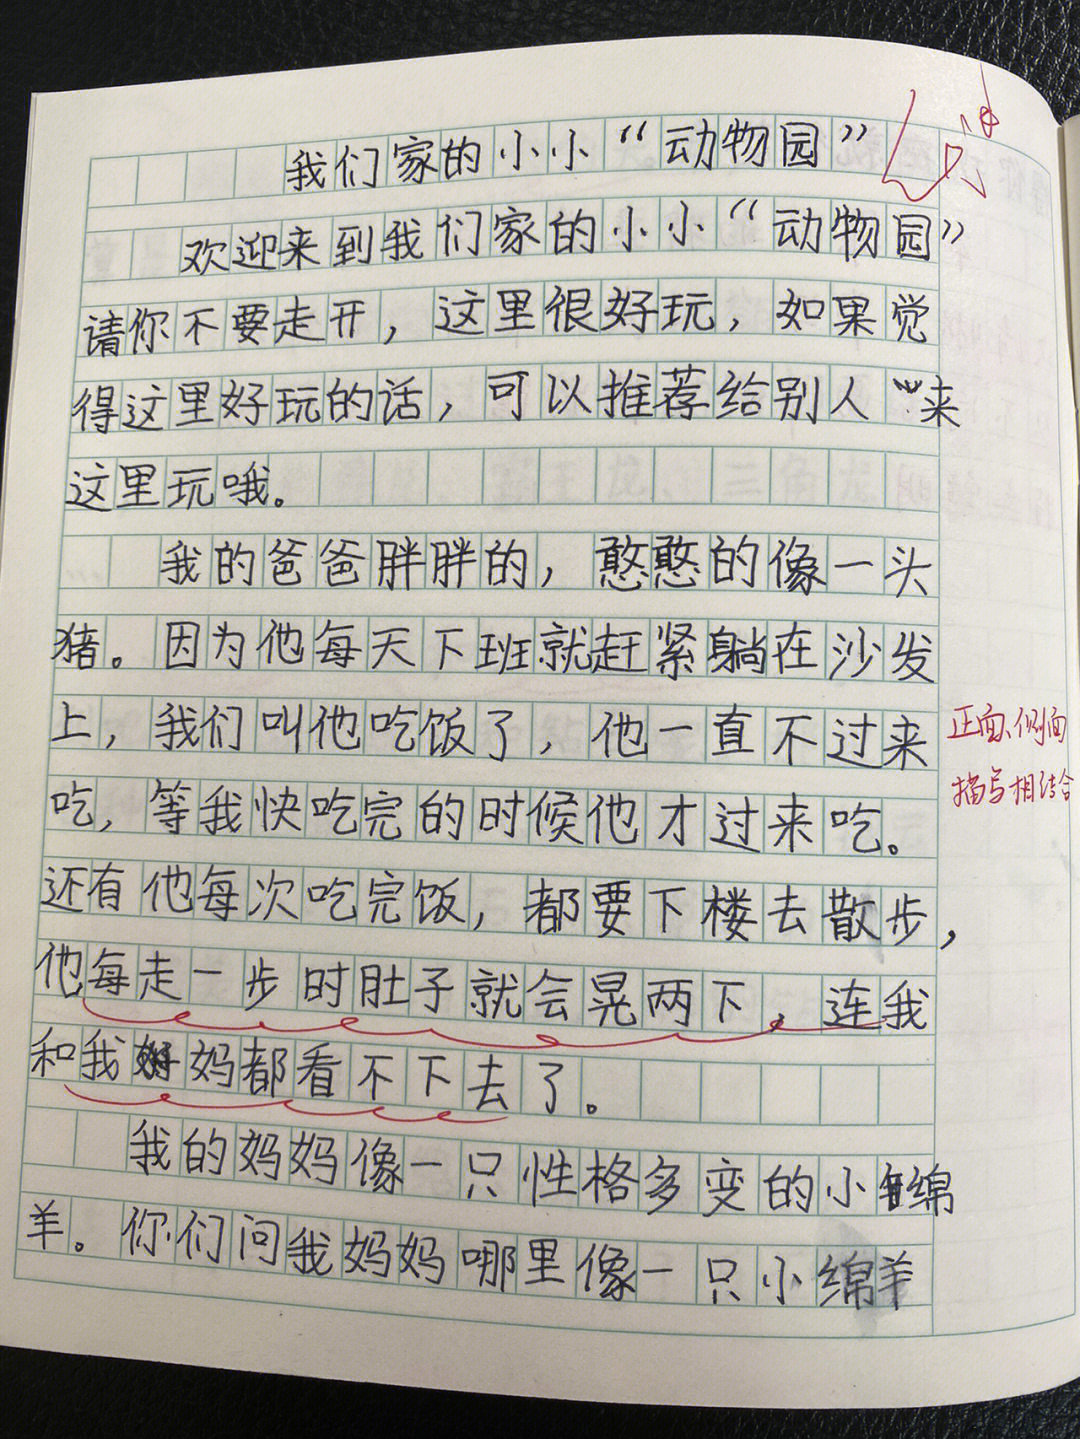 我们家的小小“动物园”
欢迎来到我们家的小小“动物园”
请你不要走开，这里很好玩，如果觉
得这里好玩的话，可以推荐给别人 来
这里玩哦。
我的爸爸胖胖的，憨憨的像一头
猪。因为他每天下班就赶紧躺在沙发
上，我们叫他吃饭了，他一直不过来
吃，等我快吃完的时候他才过来吃。
还有他每次吃完饭，都要下楼去散步，
他每走一步时肚子就会晃两下，连我
和我妈都看不下去了。
我的妈妈像一只性格多变的小绵
羊。你们问我妈妈哪里像一只小绵羊
正面、侧面
描写相结合